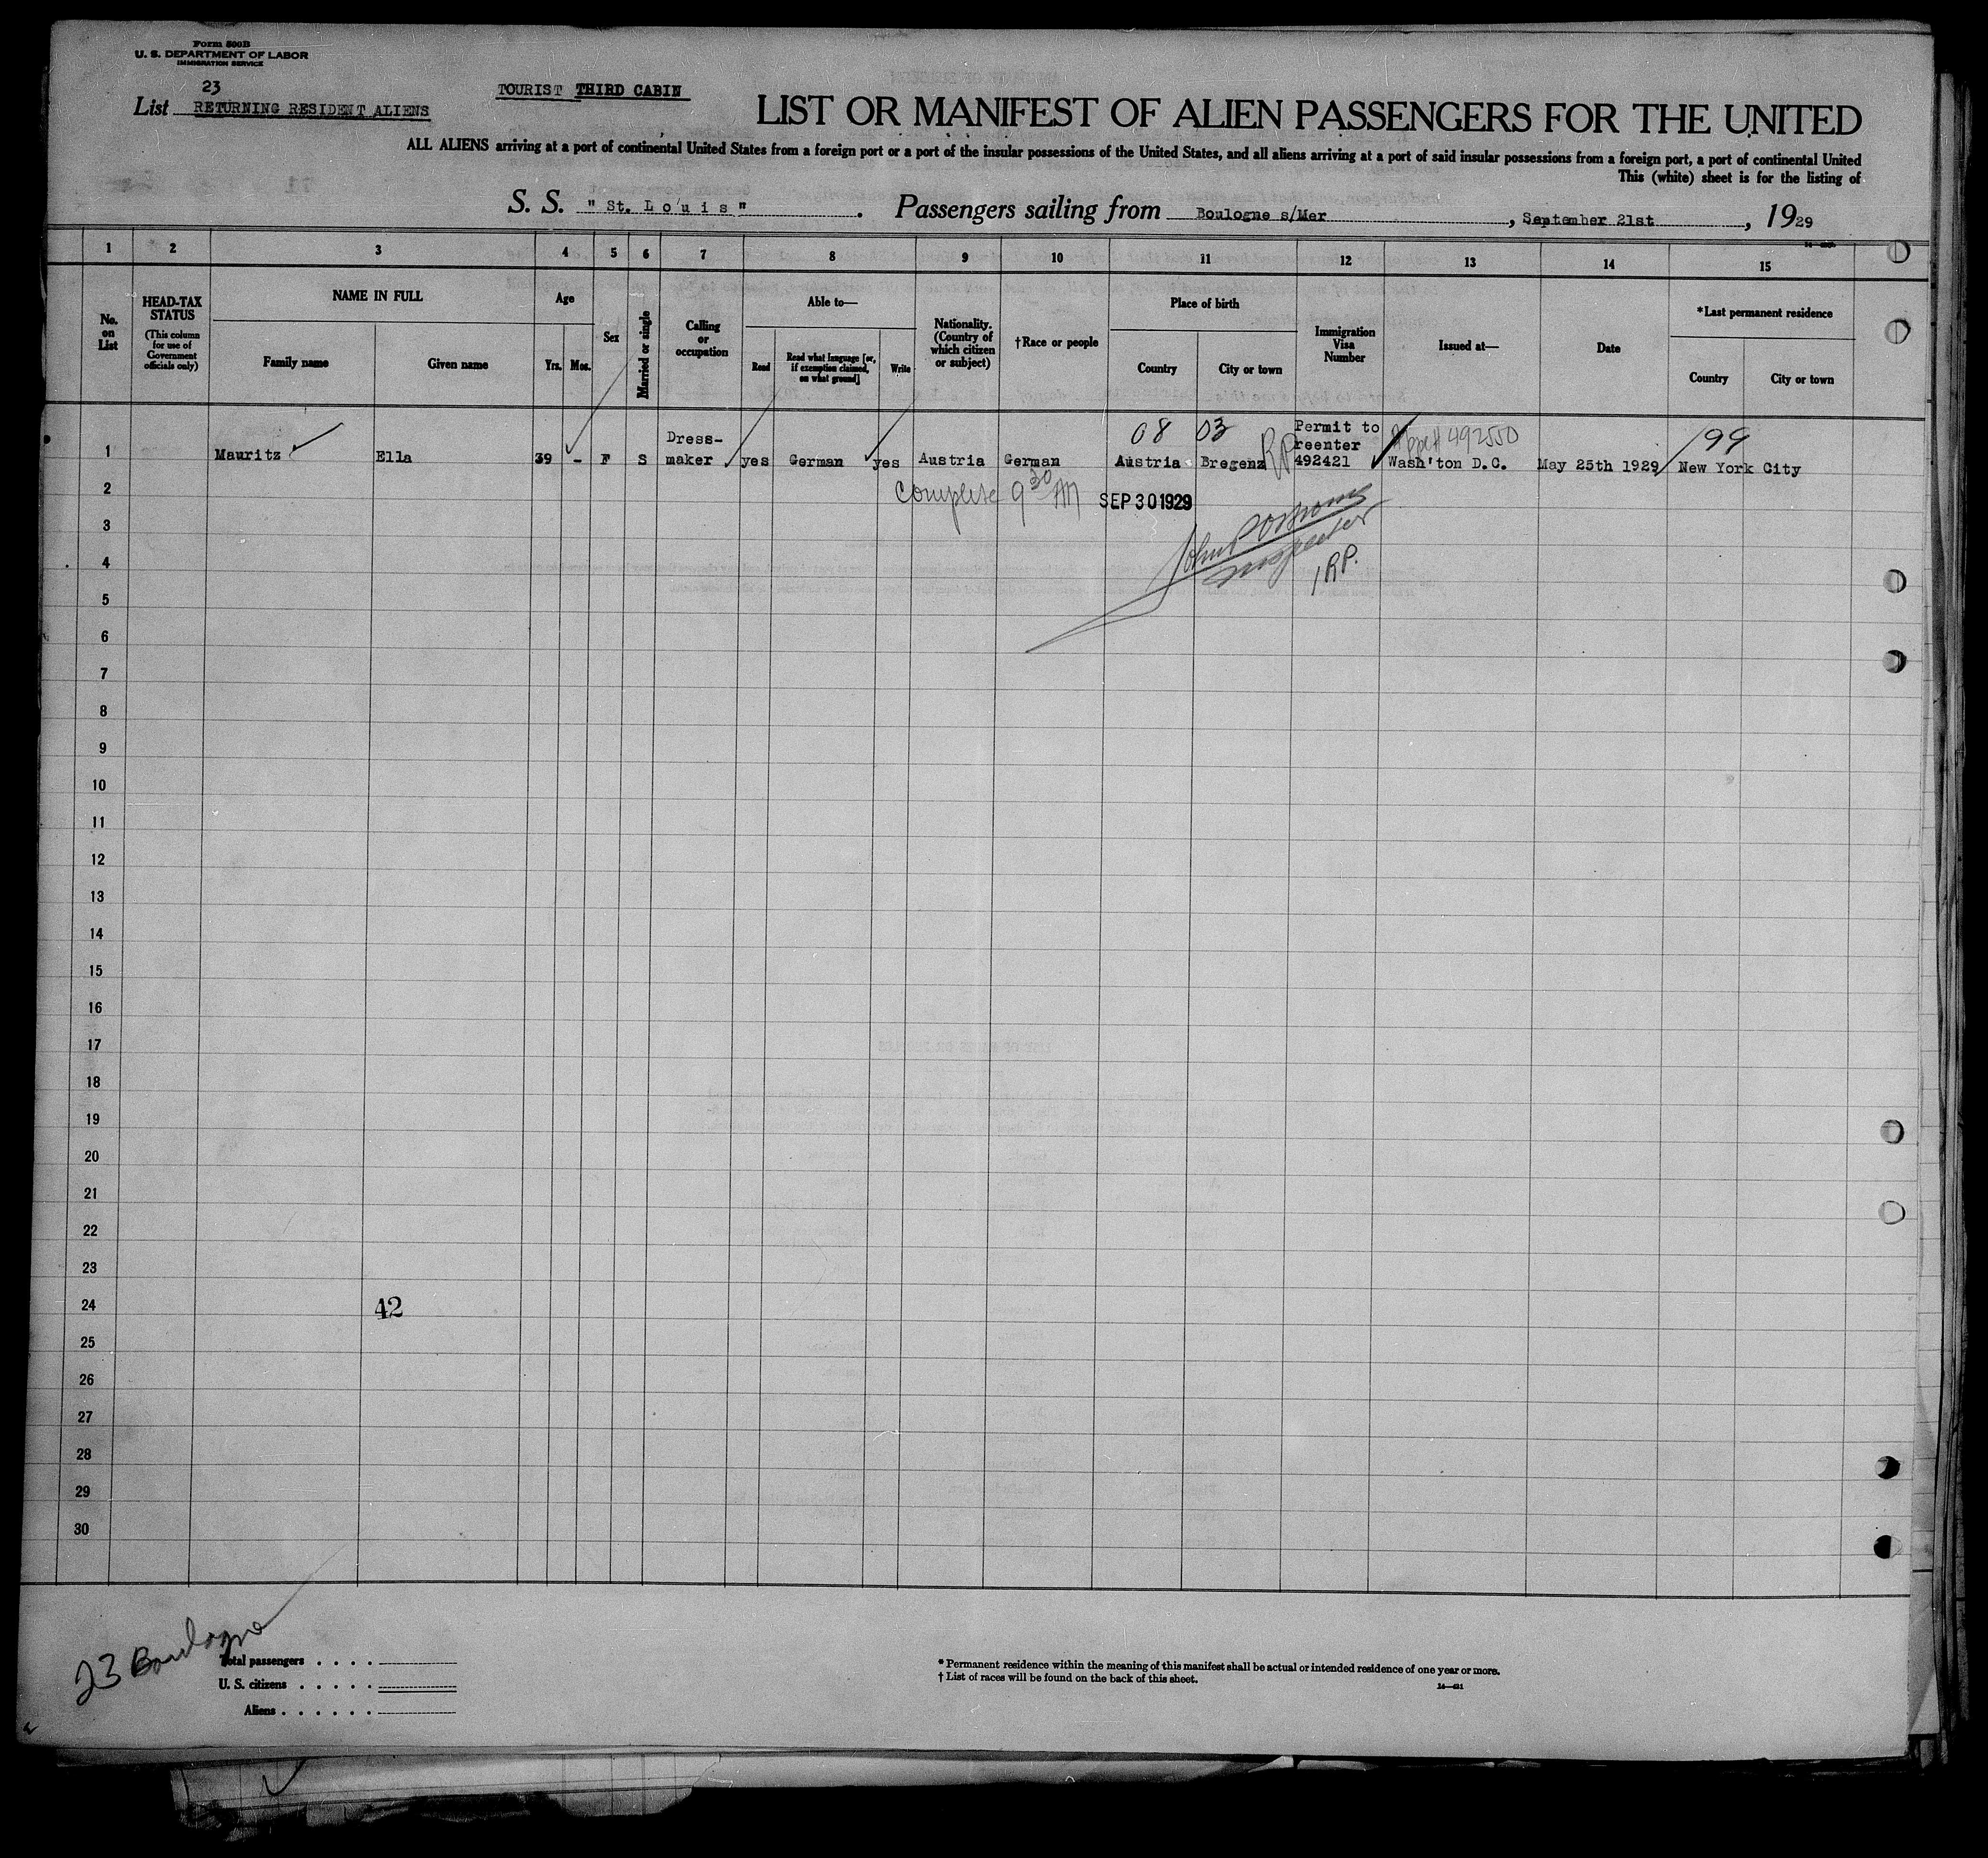 Form 500B
U. S. DEPARTMENT OF LABOR
IMMIGRATION SERVICE
23
List RETURNING RESIDENT ALIENS
TOURIST THIRD CABIN
LIST OR MANIFEST OF ALIEN PASSENGERS FOR THE UNITED
ALL ALIENS arriving at a port of continental United States from a foreign port or a port of the insular possessions of the United States, and all aliens arriving at a port of said insular possessions from a foreign port, a port of continental United
This (white) sheet is for the listing of
S. S. "St. Louis". Passengers sailing from Boulogne s/Mer, September 21st, 1929
1 2 3 4 5 6 7 8 9 10 11 12 13 14 15
No. on List
HEAD-TAX STATUS
(This column for use of Government officials only)
NAME IN FULL
Family name
Given name
Age
Yrs.
Mos.
Sex
Married or single
Calling or occupation
Able to—
Read
Read what language [or, if exemption claimed, on what ground]
Write
Nationality. (Country of which citizen or subject)
†Race or people
Place of birth
Country
City or town
Immigration Visa Number
Issued at—
Date
*Last permanent residence
Country
City or town
08 03 RP 492550 99
1 Mauritz Ella 39 - F S Dress-maker yes German yes Austria German Austria Bregenz Permit to reenter 492421 Wash'ton D.C. May 25th 1929 New York City
2 Complete 9 30 AM SEP 30 1929
3
Inspector
4 1 RP.
5
6
7
8
9
10
11
12
13
14
15
16
17
18
19
20
21
22
23
24 42
25
26
27
28
29
30
23 Boulogne
Total passengers . . . .
U. S. citizens . . . . .
Aliens . . . . . .
* Permanent residence within the meaning of this manifest shall be actual or intended residence of one year or more.
† List of races will be found on the back of this sheet.
14—421